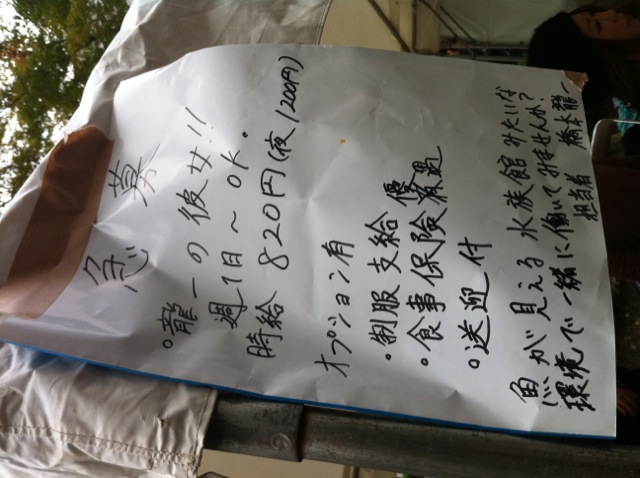 急 募
◦龍一の彼女!!
週1日〜OK。
時給 820円(夜1200円)
オプション有
・制服支給優
・食事保険厩遇
◦送迎付
魚が見える水族館みたいな
環境で一緒に働いてみませんか?
担当者 橋本龍一